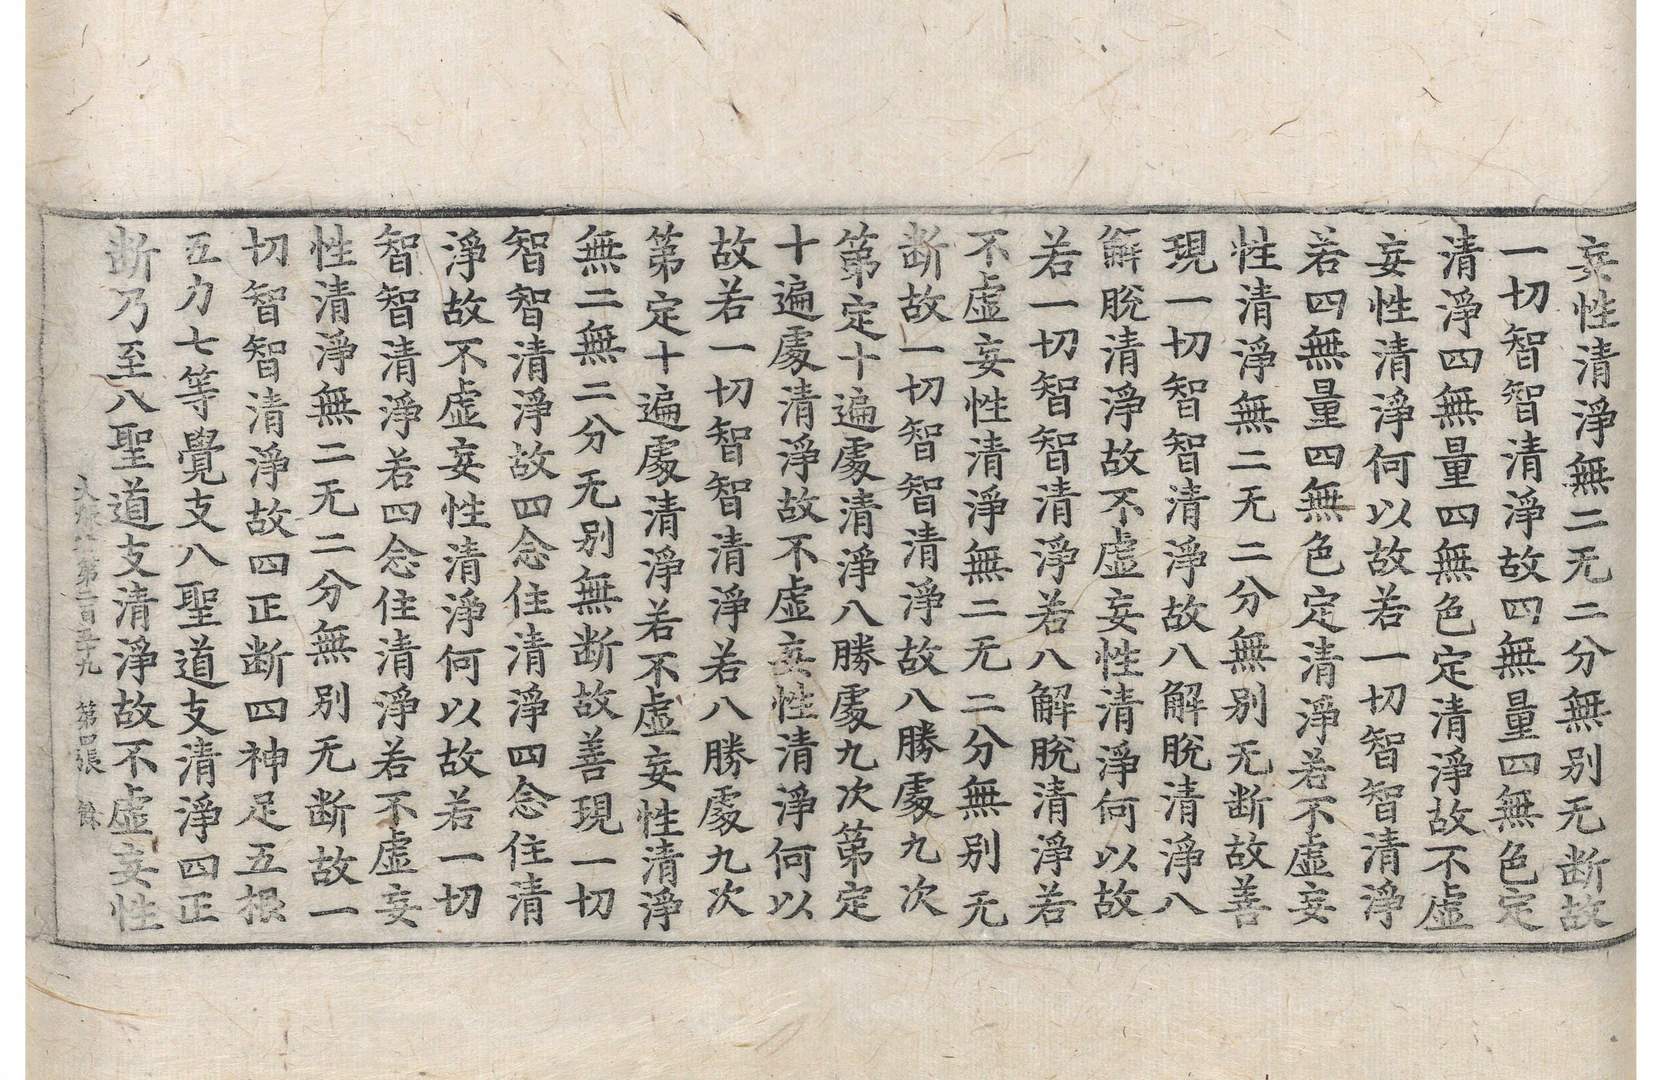 妄性清淨無二无二分無别无断故
一切智智清淨故四無量四無色定
清淨四無量四無色定清淨故不虛
妄性清淨何以故若一切智智清淨
若四無量四無色定清淨若不虛妄
性清淨無二无二分無别无断故善
現一切智智清淨故八解脫清淨八
解脫清淨故不虛妄性清淨何以故
若一切智智清淨若八解脫清淨若
不虛妄性清淨無二无二分無别无
断故一切智智清淨故八勝處九次
第定十遍處清淨八勝處九次第定
十遍處清淨故不虛妄性清淨何以
故若一切智智清淨若八勝處九次
第定十遍處清淨若不虛妄性清淨
無二無二分无别無断故善現一切
智智清淨故四念住清淨四念住清
淨故不虛妄性清淨何以故若一切
智智清淨若四念住清淨若不虛妄
性清淨無二无二分無别无断故一
切智智清淨故四正断四神足五根
五力七等覺支八聖道支清淨四正
断乃至八聖道支清淨故不虛妄性
大般若第二百五十九 第四張